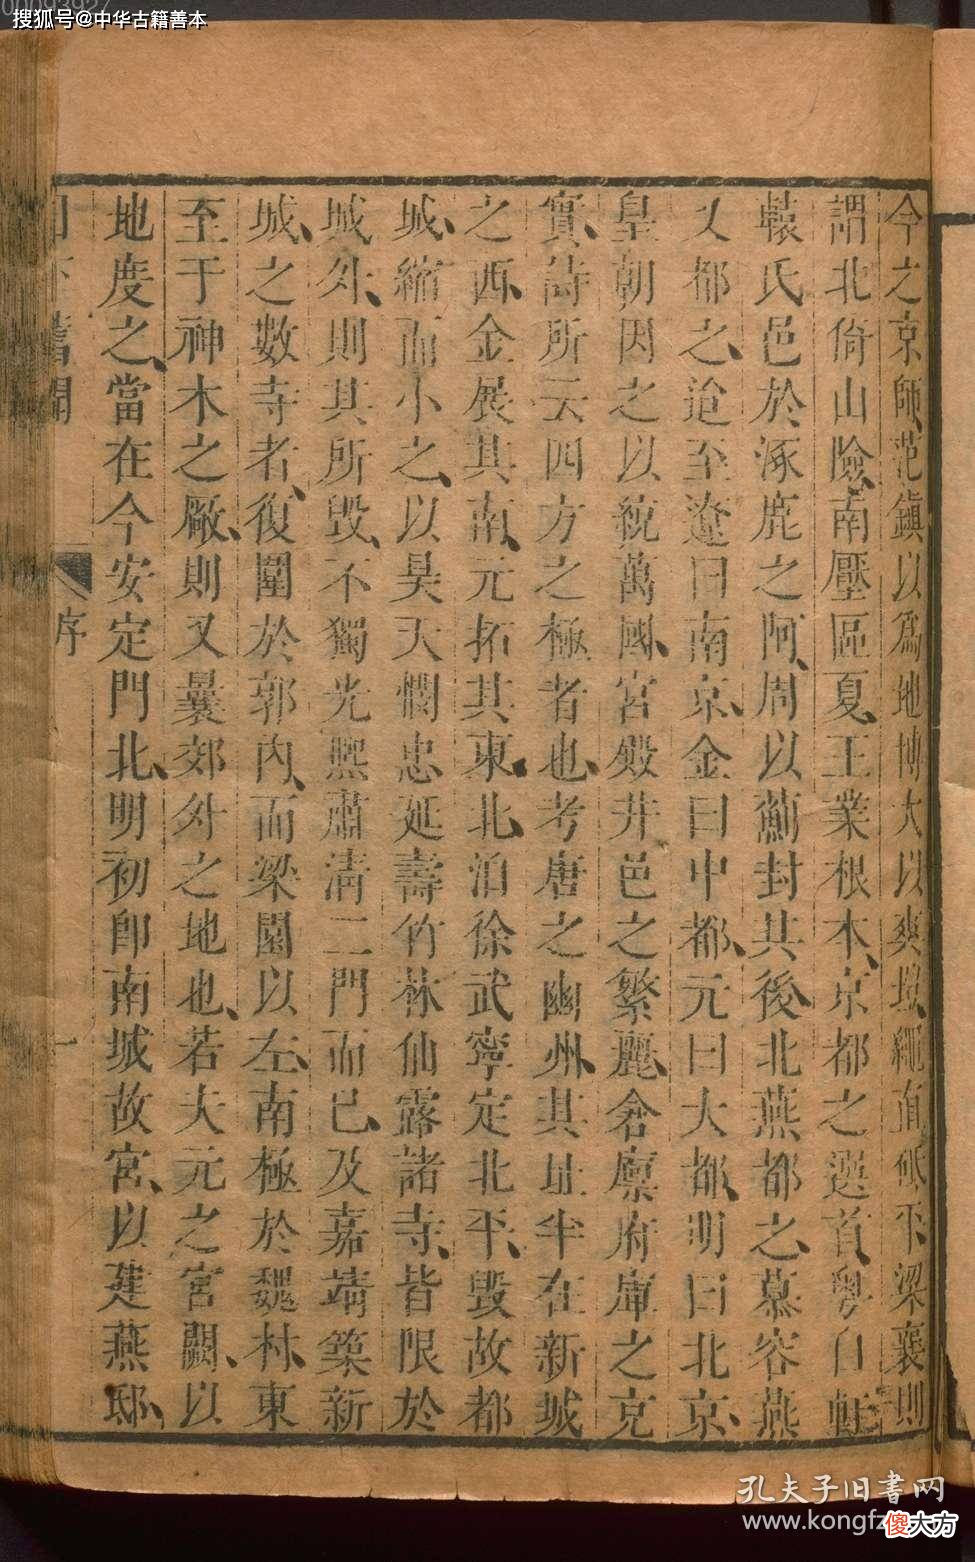 搜狐号@中华古籍善本
今之京師、范鎮以爲地博大以爽塏、繩直砥平、梁襄則
謂北倚山險、南壓區夏、王業根本、京都之選首、粤自軒
轅氏邑於涿鹿之阿、周以薊封其後、北燕都之、慕容燕
又都之、迨至遼曰南京、金曰中都、元曰大都、明曰北京、
皇朝因之以統萬國、宮殿井邑之繁麗、倉廩府庫之充
實、詩所云四方之極者也、考唐之幽州、其址半在新城
之西、金展其南、元拓其東北、洎徐武寧定北平、毀故都
城、縮而小之、以昊天憫忠延壽竹林仙露諸寺、皆限於
城外、則其所毀、不獨光熙肅清二門而已、及嘉靖築新
城、之數寺者、復圍於郭內、而梁園以左、南極於魏村、東
至于神木之厰、則又曩郊外之地也、若夫元之宮闕、以
地度之、當在今安定門北、明初卽南城故宮、以建燕邸、
日下舊聞
序
一
孔夫子旧書网
www.kongfz
傻大方